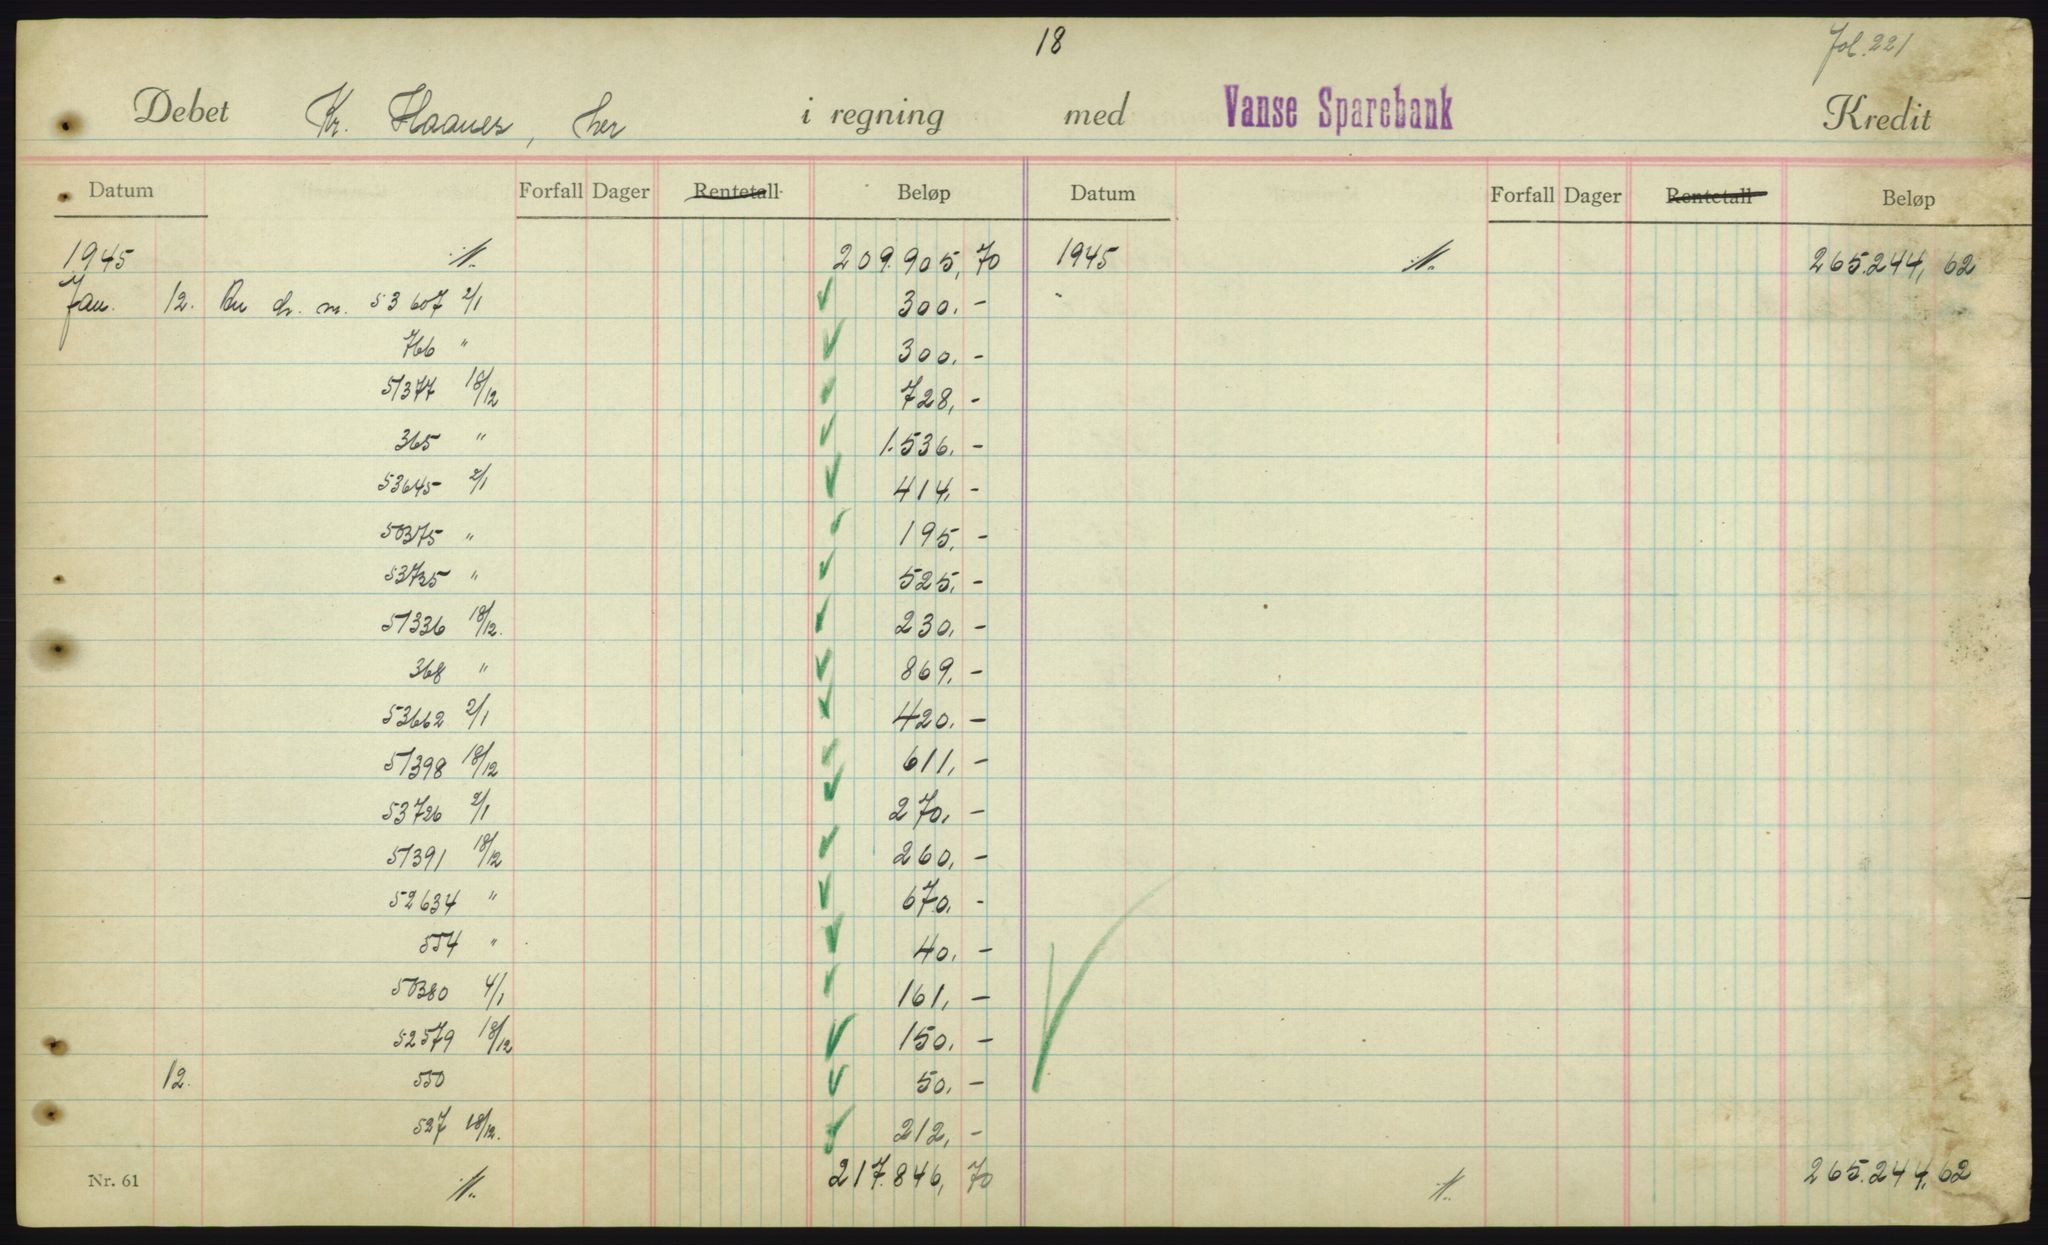 18
Fol. 221
Debet Kr. Haanes, her i regning med Vanse Sparebank Kredit
Datum Forfall Dager Rentetall Beløp Datum Forfall Dager Rentetall Beløp
1945 209.905,70 1945 265.244,62
Jan. 12. 53607 2/1 300.-
766 " 300.-
51377 18/12 728,-
365 " 1.536.-
53645 2/1 414,-
50375 " 195.-
53735 " 525.-
51336 18/12. 230.-
368 " 869.-
53662 2/1 420.-
51398 18/12 611,-
53726 2/1 270.-
51391 18/12 260.-
52634 " 670.-
554 " 40.-
50380 4/1 161,-
52579 18/12 150.-
12. 550 50.-
527 18/12. 212,-
Nr. 61 217.846,70 265.244,62